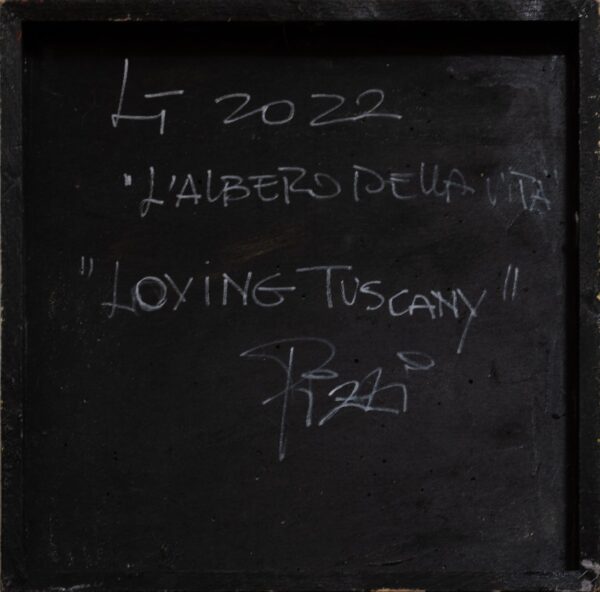 LT 2022
"L'ALBERO DELLA VITA
"LOVING TUSCANY"
Pizzi